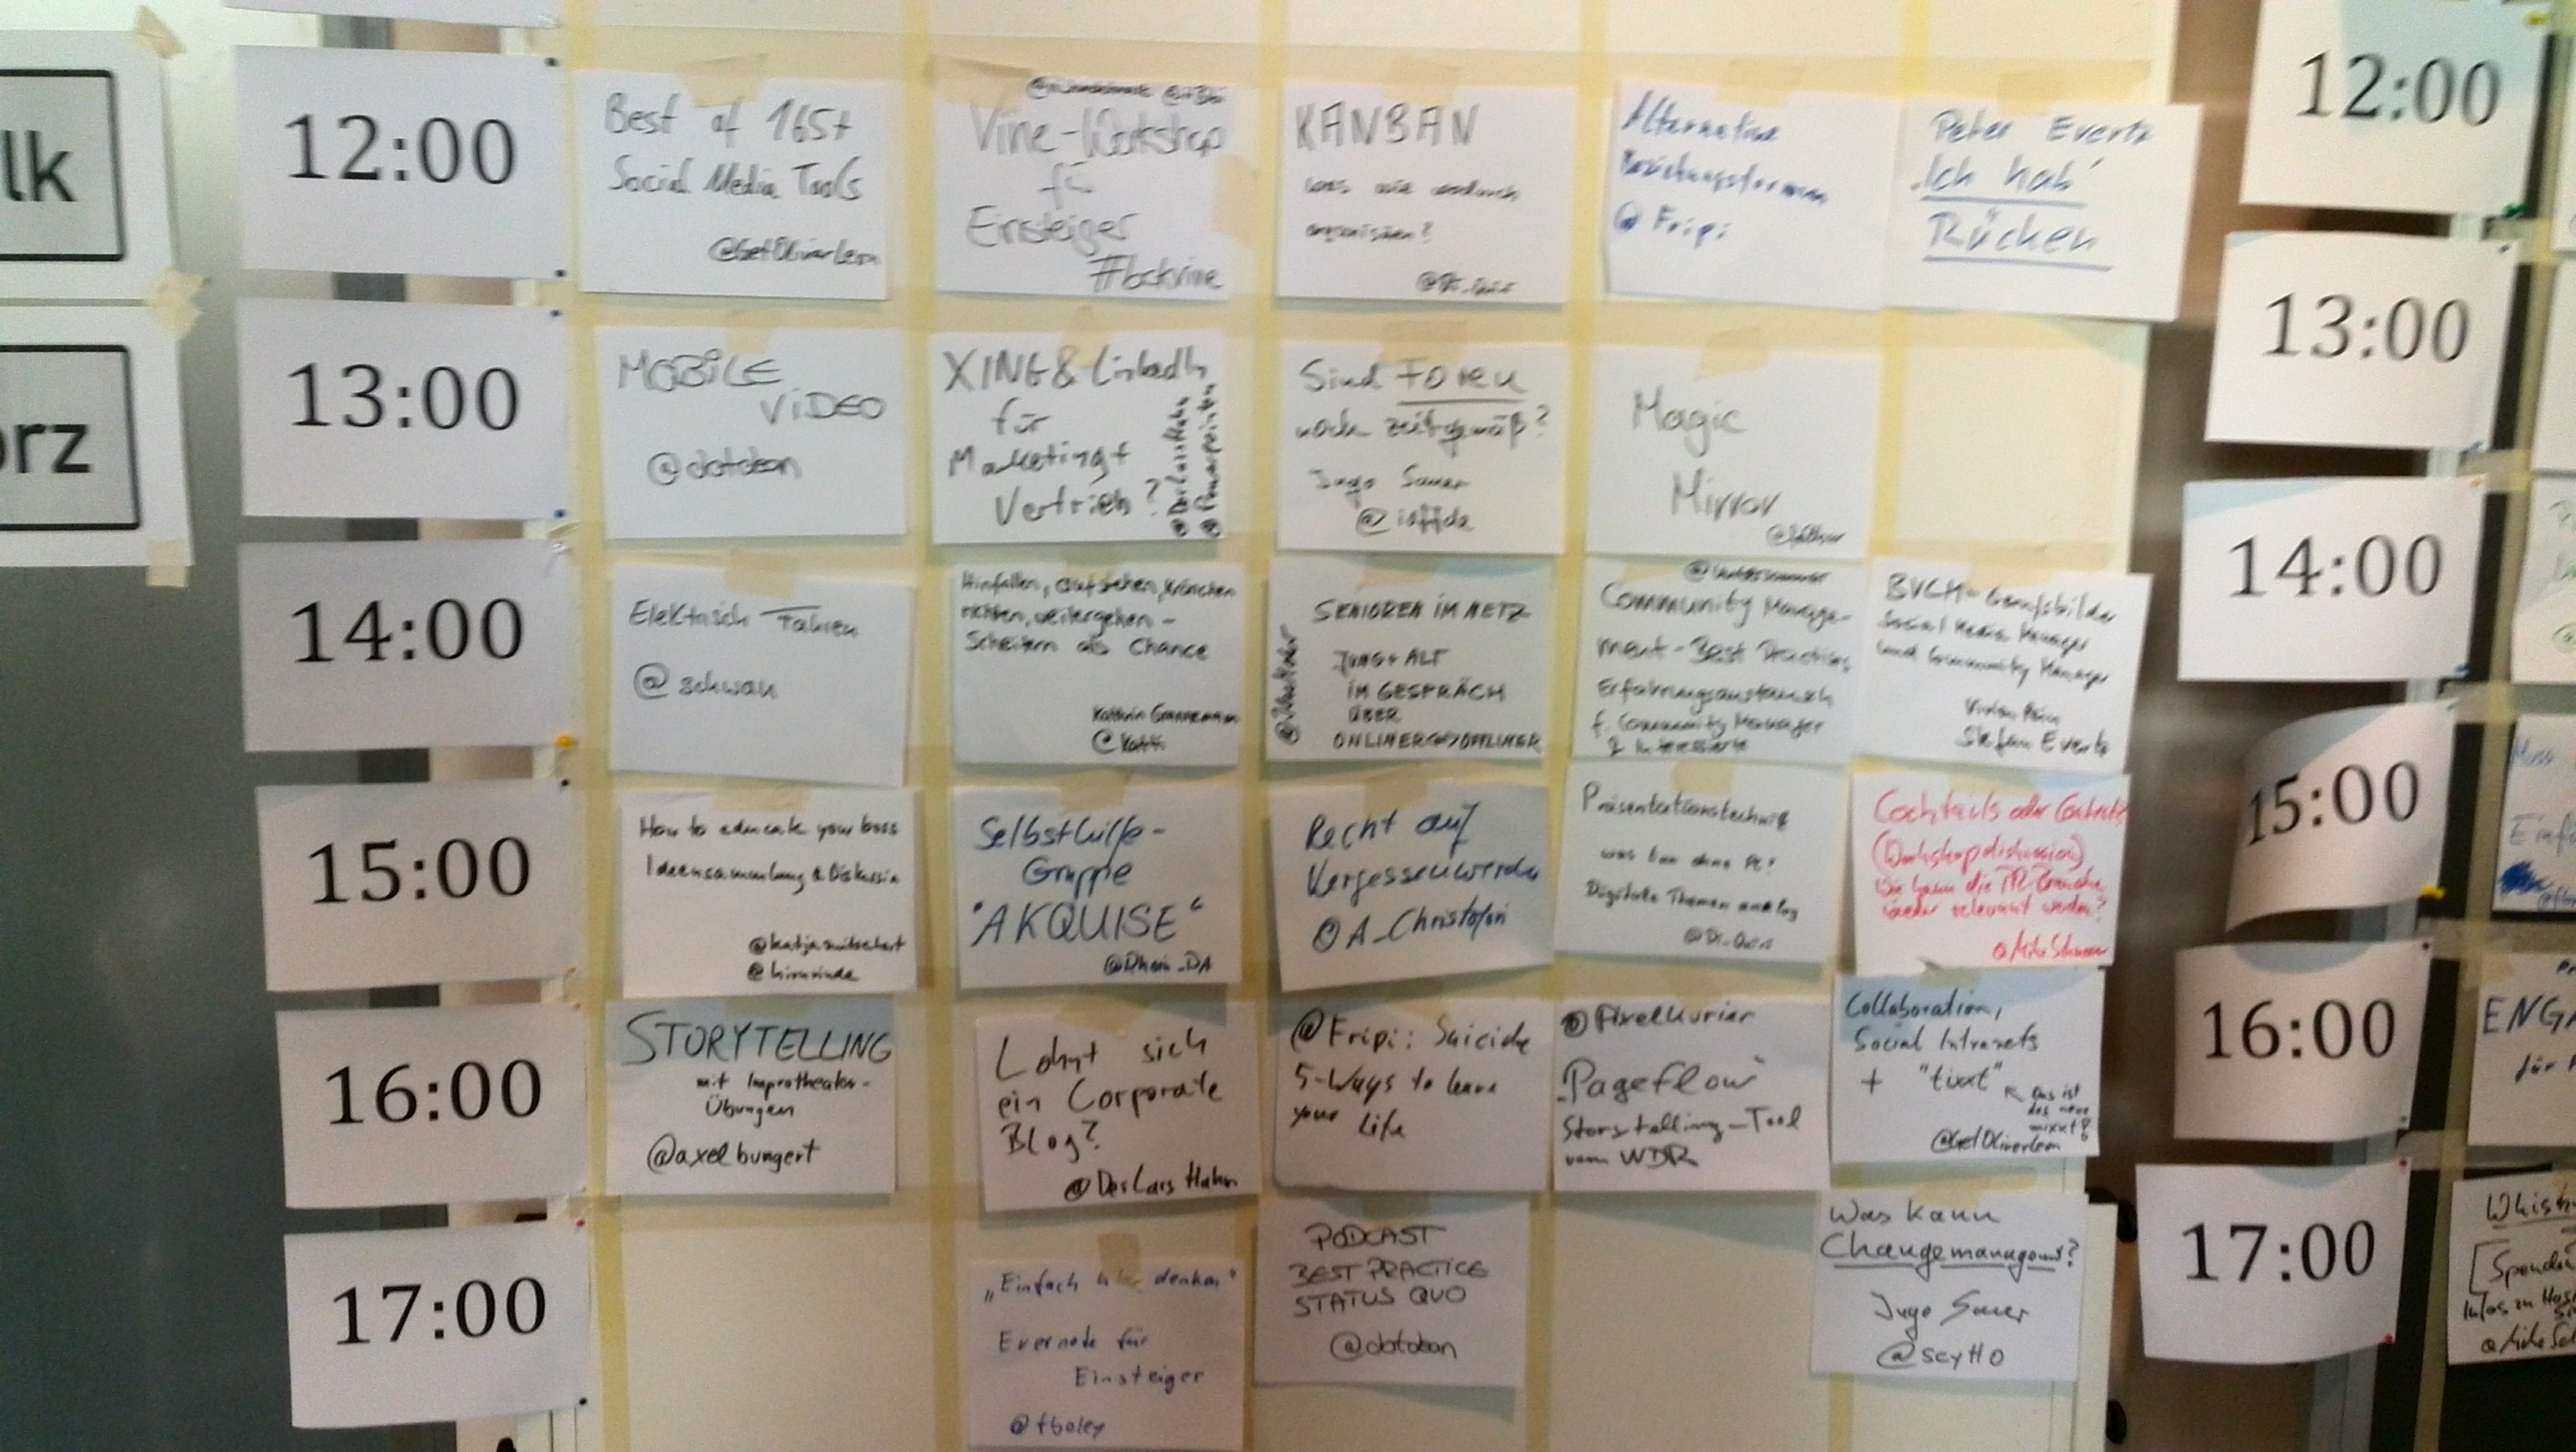 lk
orz
12:00
Best of 165+
Social Media Tools
@GetOliverLem
Vine-Workshop
für
Einsteiger
#bckvine
KANBAN
was wie wodurch
organisieren?
Alternative
Beziehungsformen
@Fripi
Peter Everts
"Ich hab'
Rücken
12:00
13:00
MOBILE
VIDEO
@dotdean
XING & LinkedIn
für
Marketing+
Vertrieb?
@DerLarsHahn
Sind Foren
noch zeitgemäß?
Ingo Sauer
Magic
Mirror
13:00
14:00
Elektrisch Fahren
@schwan
Hinfallen, aufstehen, Krönchen
richten, weitergehen -
Scheitern als Chance
Kathrin
SENIOREN IM NETZ
JUNG+ALT
IM GESPRÄCH
ÜBER
ONLINER<->OFFLINER
Community Manage-
ment - Best Practices
Erfahrungsaustausch
f. Community Manager
& Interessierte
BVCM - Berufsbilder
Social Media Manager
und Community Manager
Vivian Pein
Stefan Evertz
14:00
15:00
How to educate your boss
Ideensammlung & Diskussion
Selbsthilfe-
Gruppe
"AKQUISE"
@Rhein_DA
Recht auf
Vergessenwerden
@A_Christofori
Präsentationstechnik
Digitale Themen analog
Cocktails oder
(Workshopdiskussion)
Wie kann die PR Branche
wieder relevant werden?
15:00
16:00
STORYTELLING
mit Improtheater-
Übungen
@axelbungert
Lohnt sich
ein Corporate
Blog?
@DerLarsHahn
@Fripi: Suicide
5-Ways to leave
your Life
@Pixelkurier
"Pageflow"
Storytelling-Tool
vom WDR
Collaboration,
Social Intranets
+ "tixxt"
das ist
das neue
mixxt!
@GetOliverLem
16:00
ENGA
für
17:00
"Einfach denken"
Evernote für
Einsteiger
@tboley
PODCAST
BEST PRACTICE
STATUS QUO
@dotdean
Was kann
Changemanagement?
Ingo Sauer
@scyHO
17:00
Infos zu